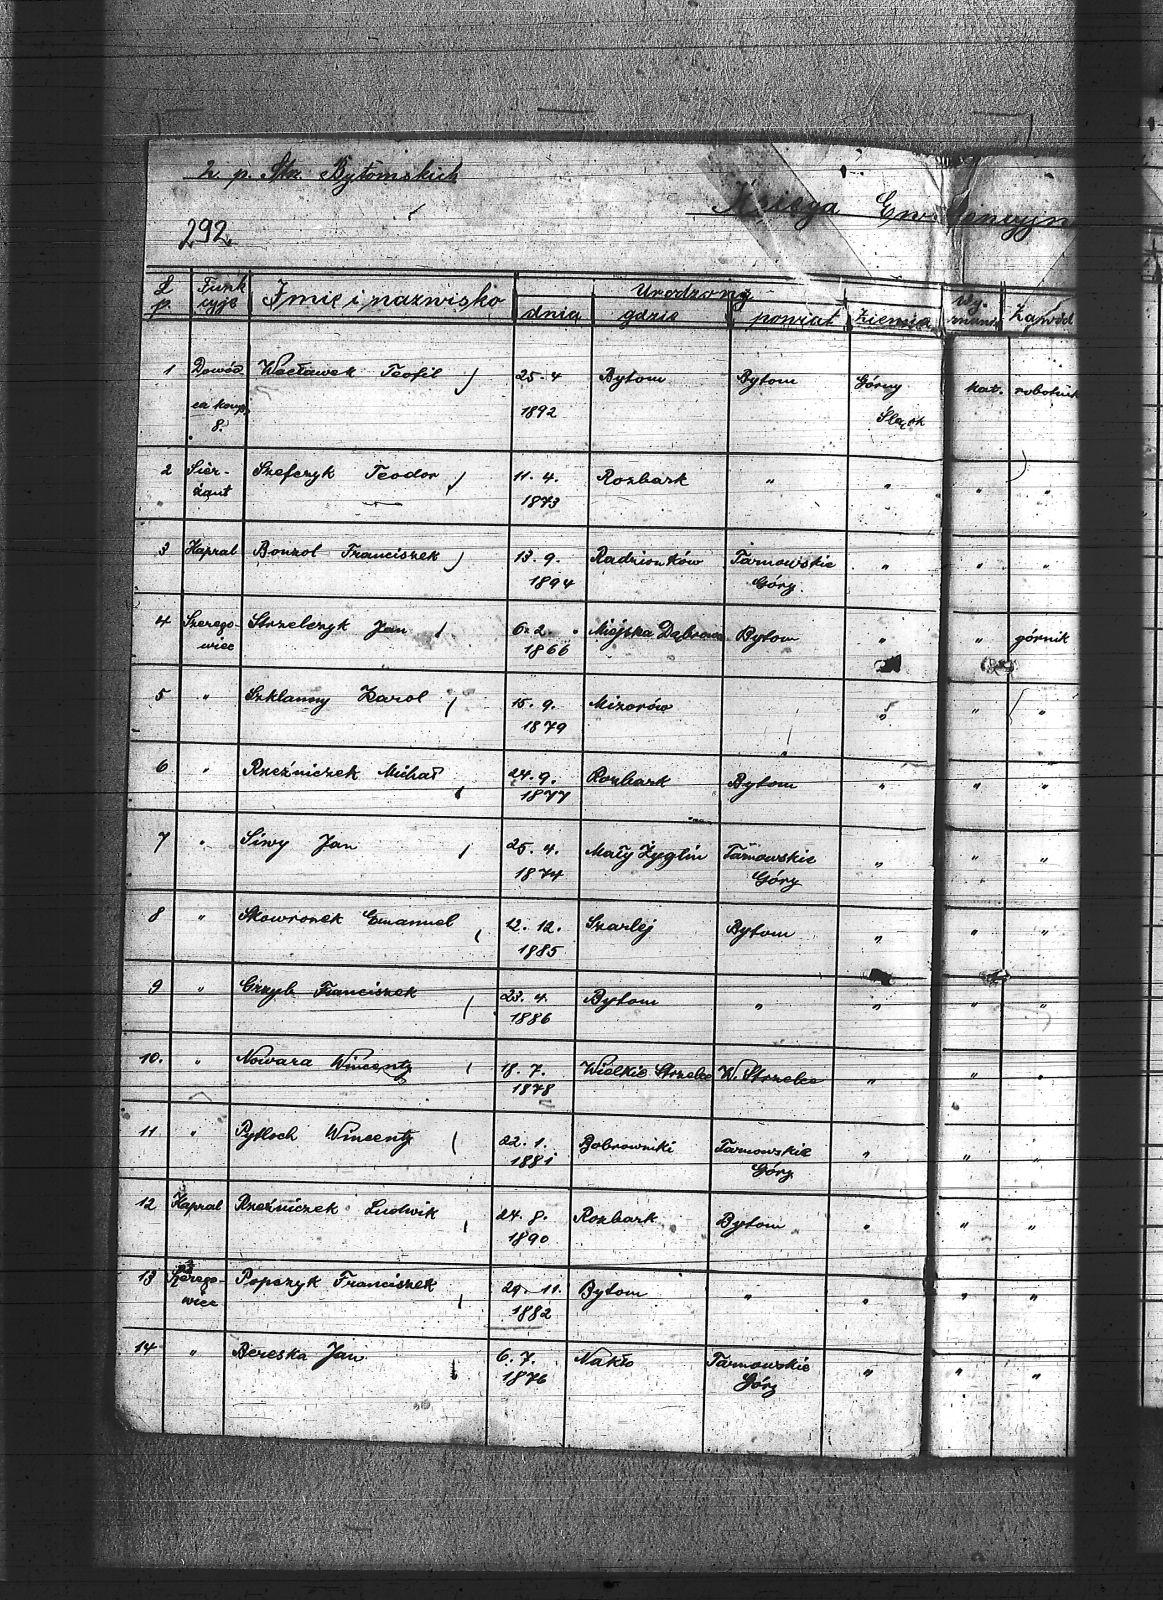 2 p. Strz. Bytomskich
Księga Ewidencyjn
292.
L. p. Funkcyje Imię i nazwisko Urodzony Wyznanie Zawód
dnia gdzie powiat Ziemia
1 Dowód- Wacławek Teofil 25. 4 Bytom Bytom Górny kat. robotnik
ca komp. 1892 Śląsk
8.
2 Sier- Szefczyk Teodor 11. 4. Rozbark " " " "
żant 1873
3 Kapral Bonzol Franciszek 13. 9. Radzionków Tarnowskie " " "
1894 Góry.
4 Szerego- Strzelczyk Jan 6. 2. Miejska Dąbrowa Bytom " " górnik
wiec 1866
5 " Szklanny Karol 15. 9. Mizorów " " " "
1879
6 " Rzeźniczek Michał 24. 9. Rozbark Bytom " " "
1877
7 " Siwy Jan 25. 4. Mały Żyglin Tarnowskie " " "
1874 Góry
8 " Skowronek Emanuel 12. 12. Szarlej Bytom " " "
1885
9 " Grzyb Franciszek 23. 4. Bytom " " " "
1886
10. " Nowara Wincenty 18. 7. Wielkie Strzelce W. Strzelce " " "
1878
11 " Pytloch Wincenty 22. 1. Bobrowniki Tarnowskie " " "
1881 Góry
12 Kapral Rzeźniczek Ludwik 24. 8. Rozbark Bytom " " "
1890
13 Szerego- Popczyk Franciszek 29. 11. Bytom " " " "
wiec 1882
14 " Bereska Jan 6. 7. Nakło Tarnowskie " " "
1876 Góry